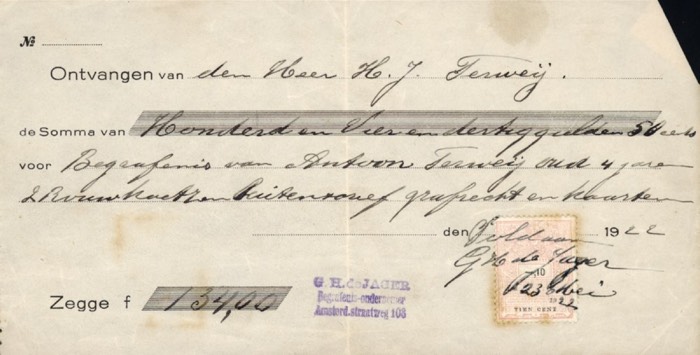 No
Ontvangen van den Heer H. J. Terweij.
de Somma van Honderd en Vier en dertig gulden 50 cents
voor Begrafenis van Antoon Terweij oud 4 jaren
2 Rouwkoetzen grafrecht en kaarten
den 1922
Voldaan
G H de Jager
10
23 Mei
1922
TIEN CENT
G. H. de JAGER
Begrafenis-ondernemer
Amsterd.straatweg 103
Zegge f 134,00